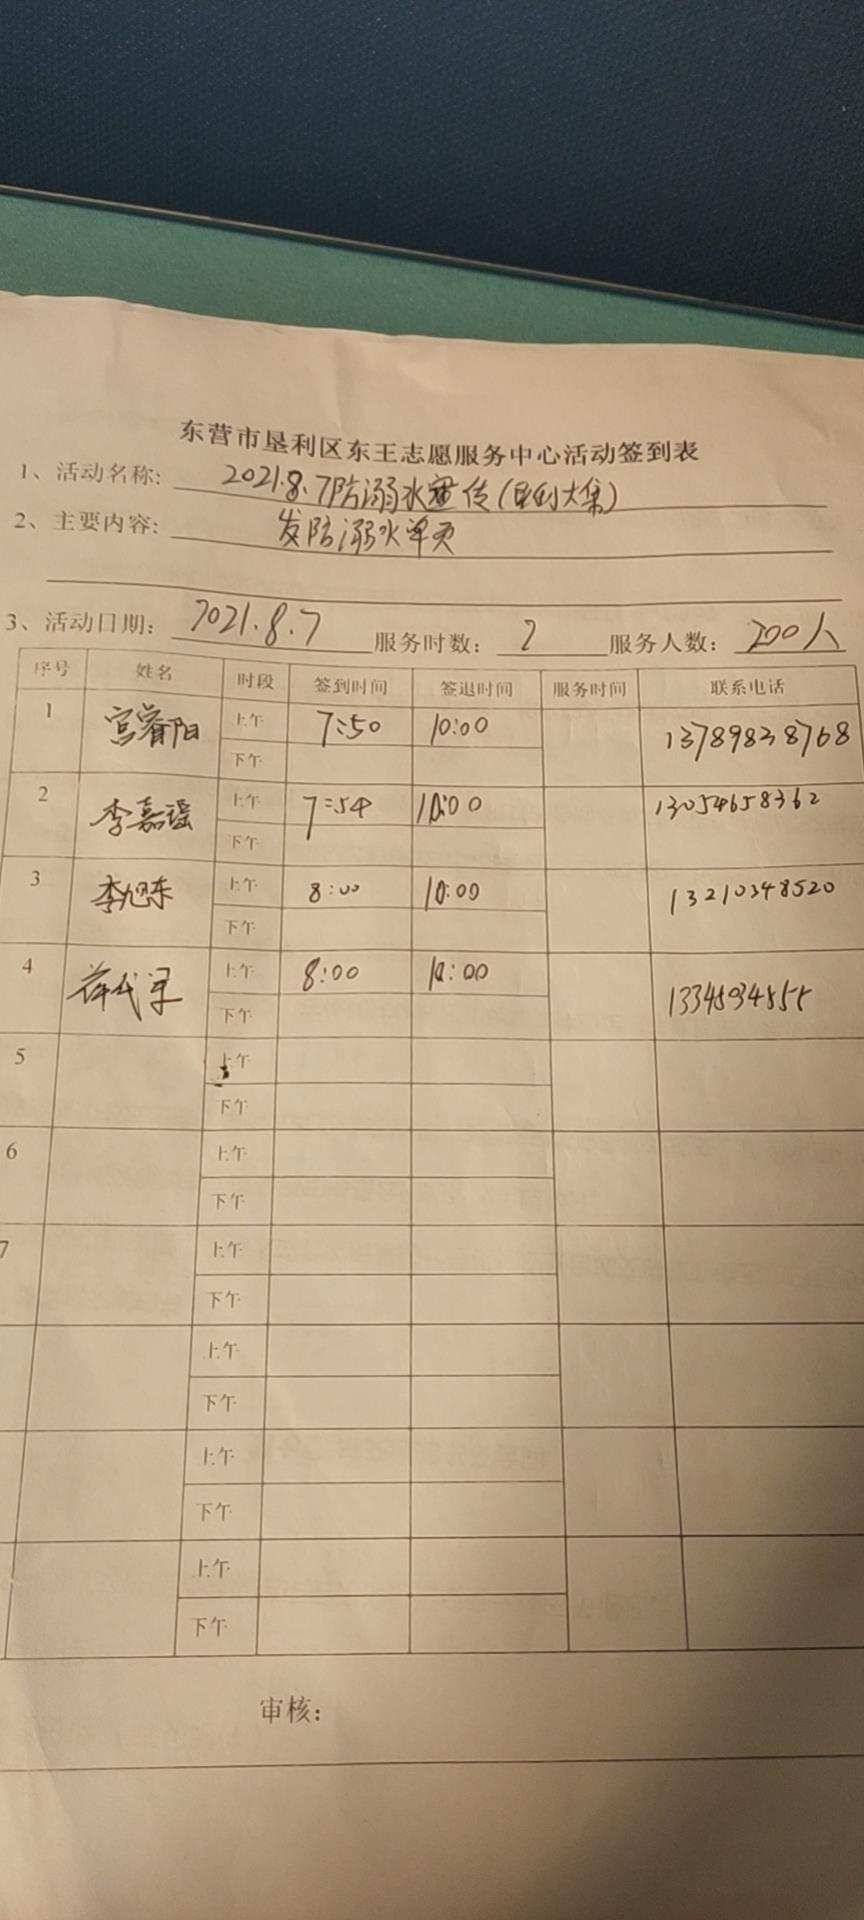 东营市垦利区东王志愿服务中心活动签到表
1、活动名称: 2021.8.7防溺水宣传(垦利大集)
2、主要内容: 发防溺水单页
3、活动日期: 2021.8.7 服务时数: 2 服务人数: 200人
序号 姓名 时段 签到时间 签退时间 服务时间 联系电话
1 宫睿阳 上午 7:50 10:00 13789838768
下午
2 李嘉瑶 上午 7:54 10:00 13054658362
下午
3 李旭东 上午 8:00 10:00 13210348520
下午
4 上午 8:00 10:00
下午
5 上午
下午
6 上午
下午
7 上午
下午
上午
下午
上午
下午
上午
下午
审核: